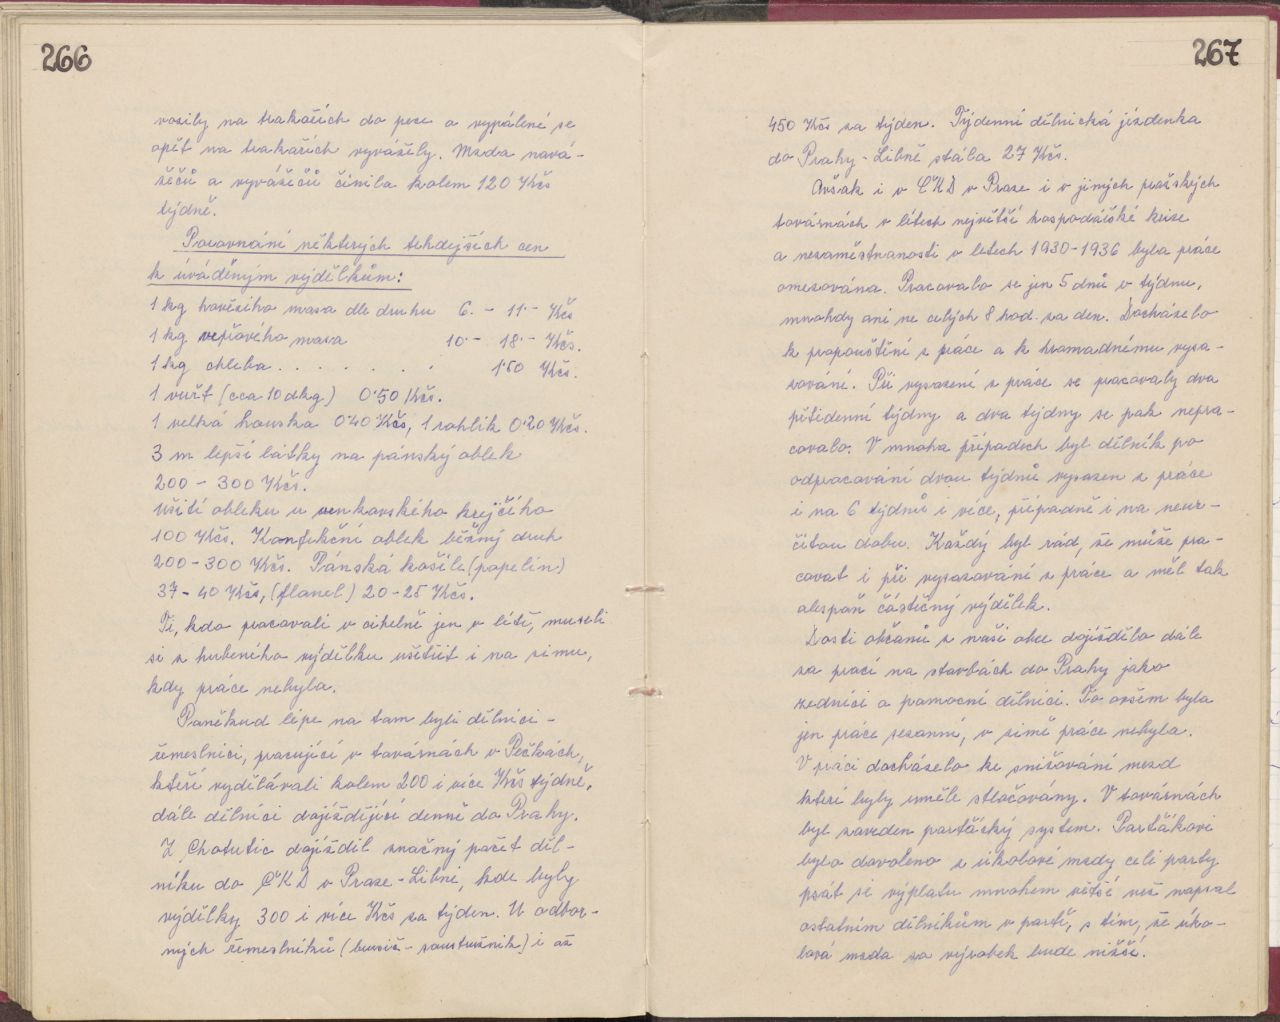 266
vozily na trakařích do pece a vypálené se
opět na trakařích vyvážely. Mzda navá-
žečů a vyvážečů činila kolem 120 Kčs
týdně.
Porovnání některých tehdejších cen
k úváděným výdělkům:
1 kg hovězího masa dle druhu 6.- 11.- Kčs
1 kg vepřového masa 10.- 18.- Kčs.
1 kg chleba . . . . . . . 1.50 Kčs.
1 vuřt (cca 10 dkg) 0.50 Kčs.
1 velká houska 0.40 Kčs, 1 rohlík 0.20 Kčs.
3 m lepší látky na pánský oblek
200 - 300 Kčs.
Ušití obleku u venkovského krejčího
100 Kčs. Konfekční oblek běžný druh
200 - 300 Kčs. Pánská košile (popelin)
37 - 40 Kčs, (flanel) 20 - 25 Kčs.
Ti, kdo pracovali v cihelně jen v létě, museli
si z hubeného výdělku ušetřit i na zimu,
kdy práce nebyla.
Poněkud lépe na tom byli dělníci -
řemeslníci, pracující v továrnách v Pečkách,
kteří vydělávali kolem 200 i více Kčs týdně,
dále dělníci dojíždějící denně do Prahy.
Z Chotutic dojíždil značný počet děl-
níku do ČKD v Praze - Libni, kde byly
výdělky 300 i více Kčs za týden. U odbor-
ných řemeslníků (brusič - soustružník) i až
267
450 Kčs za týden. Týdenní dělnická jízdenka
do Prahy - Libně stála 27 Kčs.
Avšak i v ČKD v Praze i v jiných pražských
továrnách v létech největší hospodářské krise
a nezaměstnanosti v letech 1930 - 1936 byla práce
omezována. Pracovalo se jen 5 dnů v týdnu,
mnohdy ani ne celých 8 hod. za den. Docházelo
k propouštění z práce a k hromadnému vysa-
zování. Při vysazení z práce se pracovaly dva
pětidenní týdny a dva týdny se pak nepra-
covalo. V mnoha případech byl dělník po
odpracování dvou týdnů vysazen z práce
i na 6 týdnů i více, případně i na neur-
čitou dobu. Každý byl rád, že může pra-
covat i při vysazování z práce a měl tak
alespoň částečný výdělek.
Dosti občanů z naší obce dojíždělo dále
za prací na stavbách do Prahy jako
zedníci a pomocní dělníci. To ovšem byla
jen práce sezonní, v zimě práce nebyla.
V práci docházelo ke snižování mezd
které byly uměle stlačovány. V továrnách
byl zaveden parťácký system. Parťákovi
bylo dovoleno z úkolové mzdy celé party
psát si výplatu mnohem větší než napsal
ostatním dělníkům v partě, s tím, že úko-
lová mzda za výrobek bude nižší.